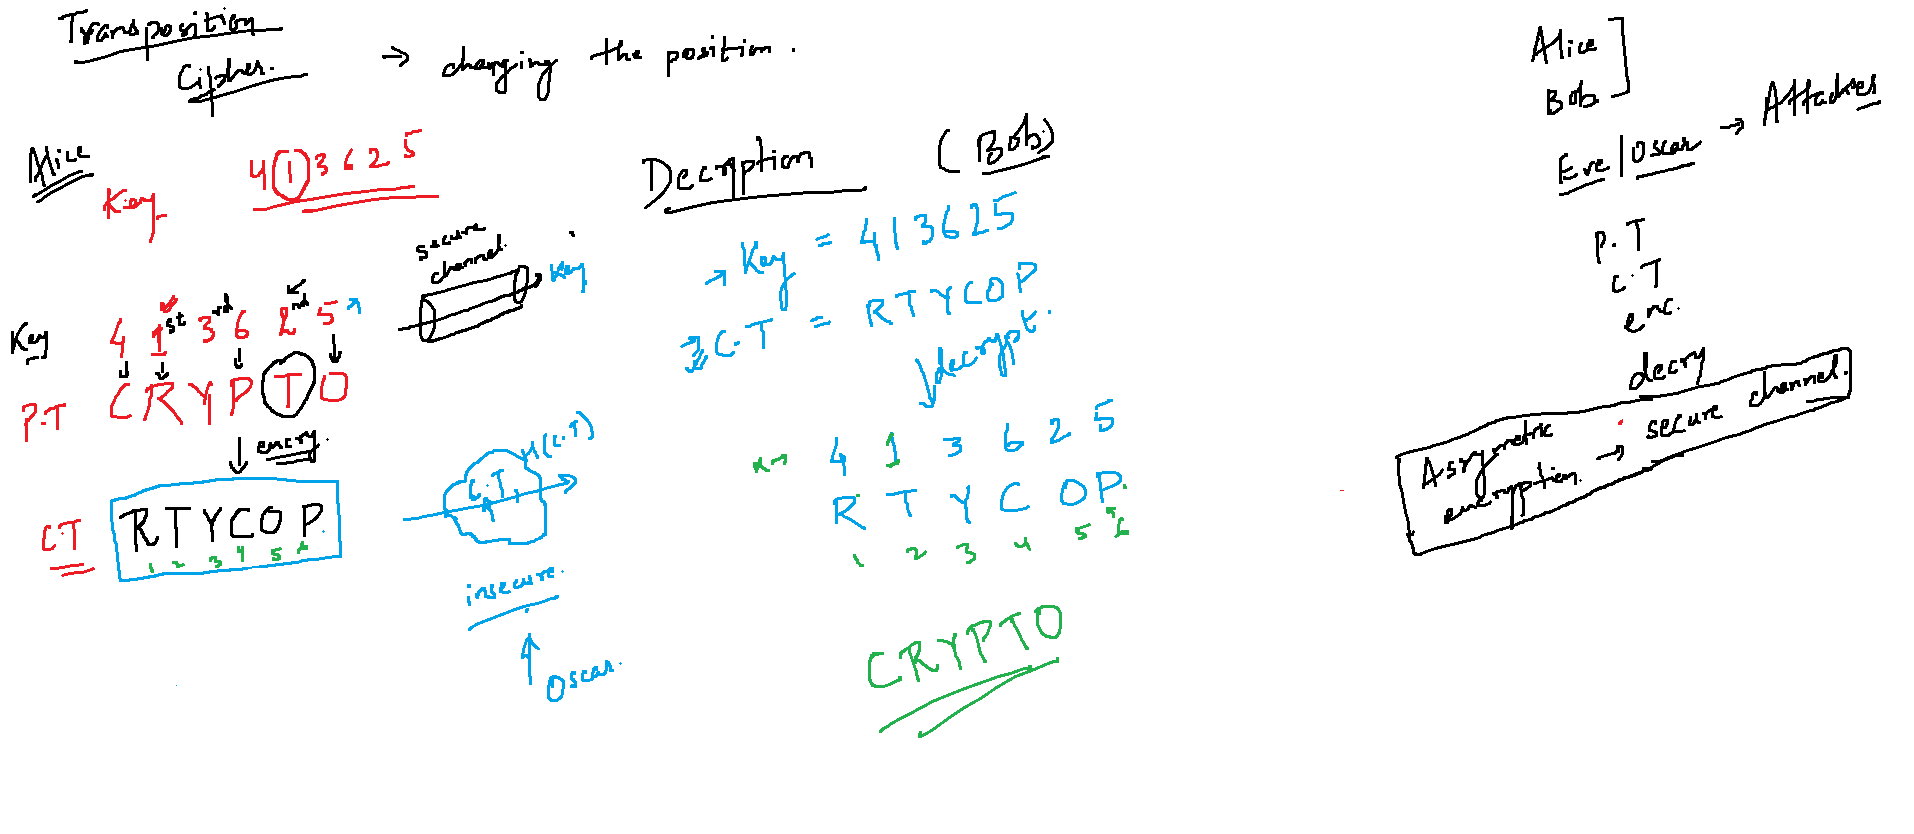 Transposition
Cipher. → changing the position.
Alice
Key 4 1 3 6 2 5
Key 4 1st 3rd 6 2nd 5
P.T C R Y P T O
encry.
C.T R T Y C O P
1 2 3 4 5 6
secure
channel.
Key
C.T. M(C.T)
insecure.
Oscar.
Decryption (Bob)
→ Key = 4 1 3 6 2 5
C.T = R T Y C O P
decrypt.
K→ 4 1 3 6 2 5
R T Y C O P.
1 2 3 4 5 6
CRYPTO
Alice
Bob
Eve/Oscar → Attackers
P.T
C.T
enc.
decry
Asymetric
encryption. → secure channel.